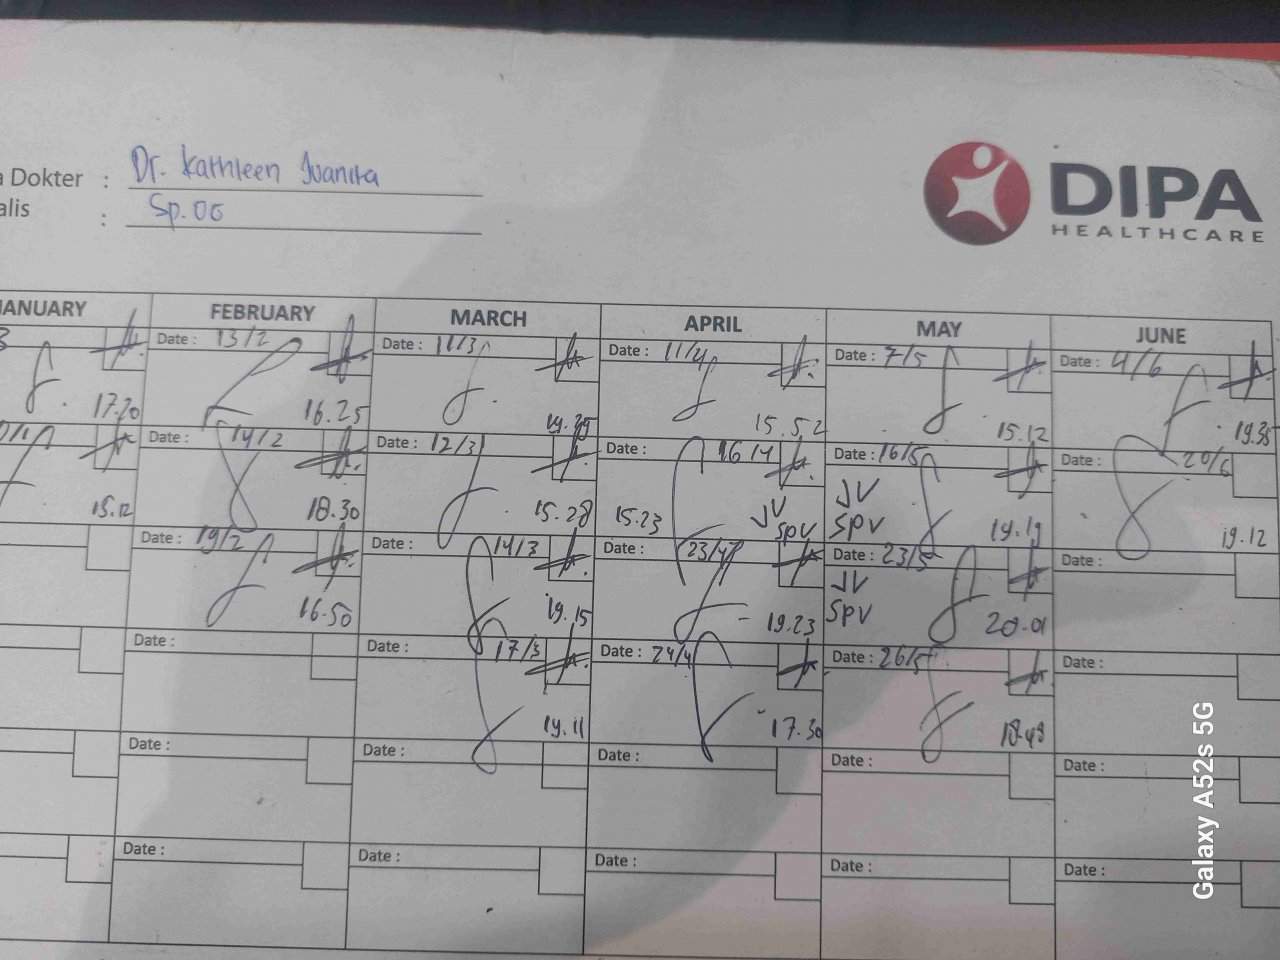 a Dokter : Dr. Kathleen Juanita
alis : Sp.OG
DIPA
HEALTHCARE
ANUARY FEBRUARY MARCH APRIL MAY JUNE
Date : 13/2 Date : 11/3 Date : 11/4 Date : 7/5 Date : 4/6
17.20 16.25 15.52 15.12 19.38
Date : 14/2 Date : 12/3 Date : 16/4 Date : 16/5 Date : 20/6
15.12 18.30 15.28 15.23 JV SPV JV SPV 19.19 19.12
Date : 19/2 Date : 14/3 Date : 23/4 Date : 23/5 Date :
16.50 19.15 19.23 JV SPV 20.01
Date : Date : 17/3 Date : 24/4 Date : 26/5 Date :
19.11 17.30 18.48
Date : Date : Date : Date : Date :
Date : Date : Date : Date : Date :
Galaxy A52s 5G